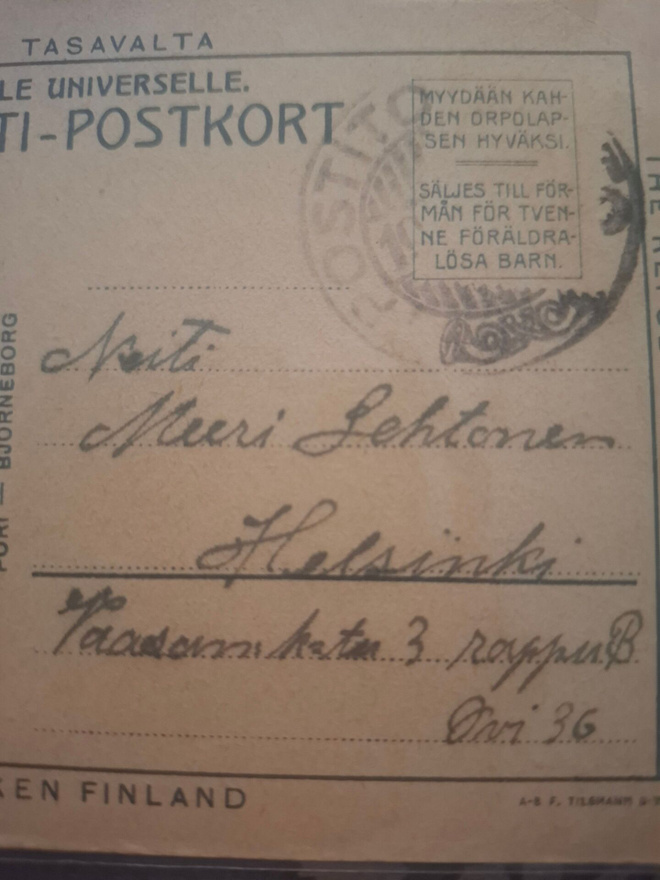 TASAVALTA
LE UNIVERSELLE.
TI-POSTKORT
MYYDÄÄN KAH-
DEN ORPOLAP-
SEN HYVÄKSI.
SÄLJES TILL FÖR-
MÅN FÖR TVEN-
NE FÖRÄLDRA-
LÖSA BARN.
POSTITO
Neiti
Meeri Lehtonen
Helsinki
Vaasank:katu 3 rappu B
Ovi 36
PORI — BJÖRNEBORG
KEN FINLAND
A-B F. TILGMANN